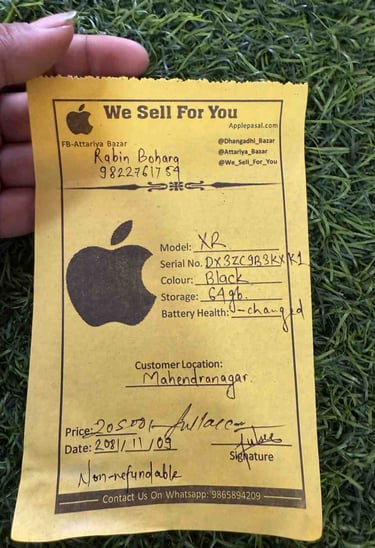 We Sell For You
Applepasal.com
FB-Attariya Bazar
@Dhangadhi_Bazar
Rabin Bohara
@Attariya_Bazar
9822761754
@We_Sell_For_You
Model: XR
Serial No. DX3ZC9B3KXK1
Colour: Black
Storage: 64gb.
Battery Health: -changed
Customer Location:
Mahendranagar.
Price: 20500/-
Date: 2081/11/09
Signature
Non-refundable
Contact Us On Whatsapp: 9865894209